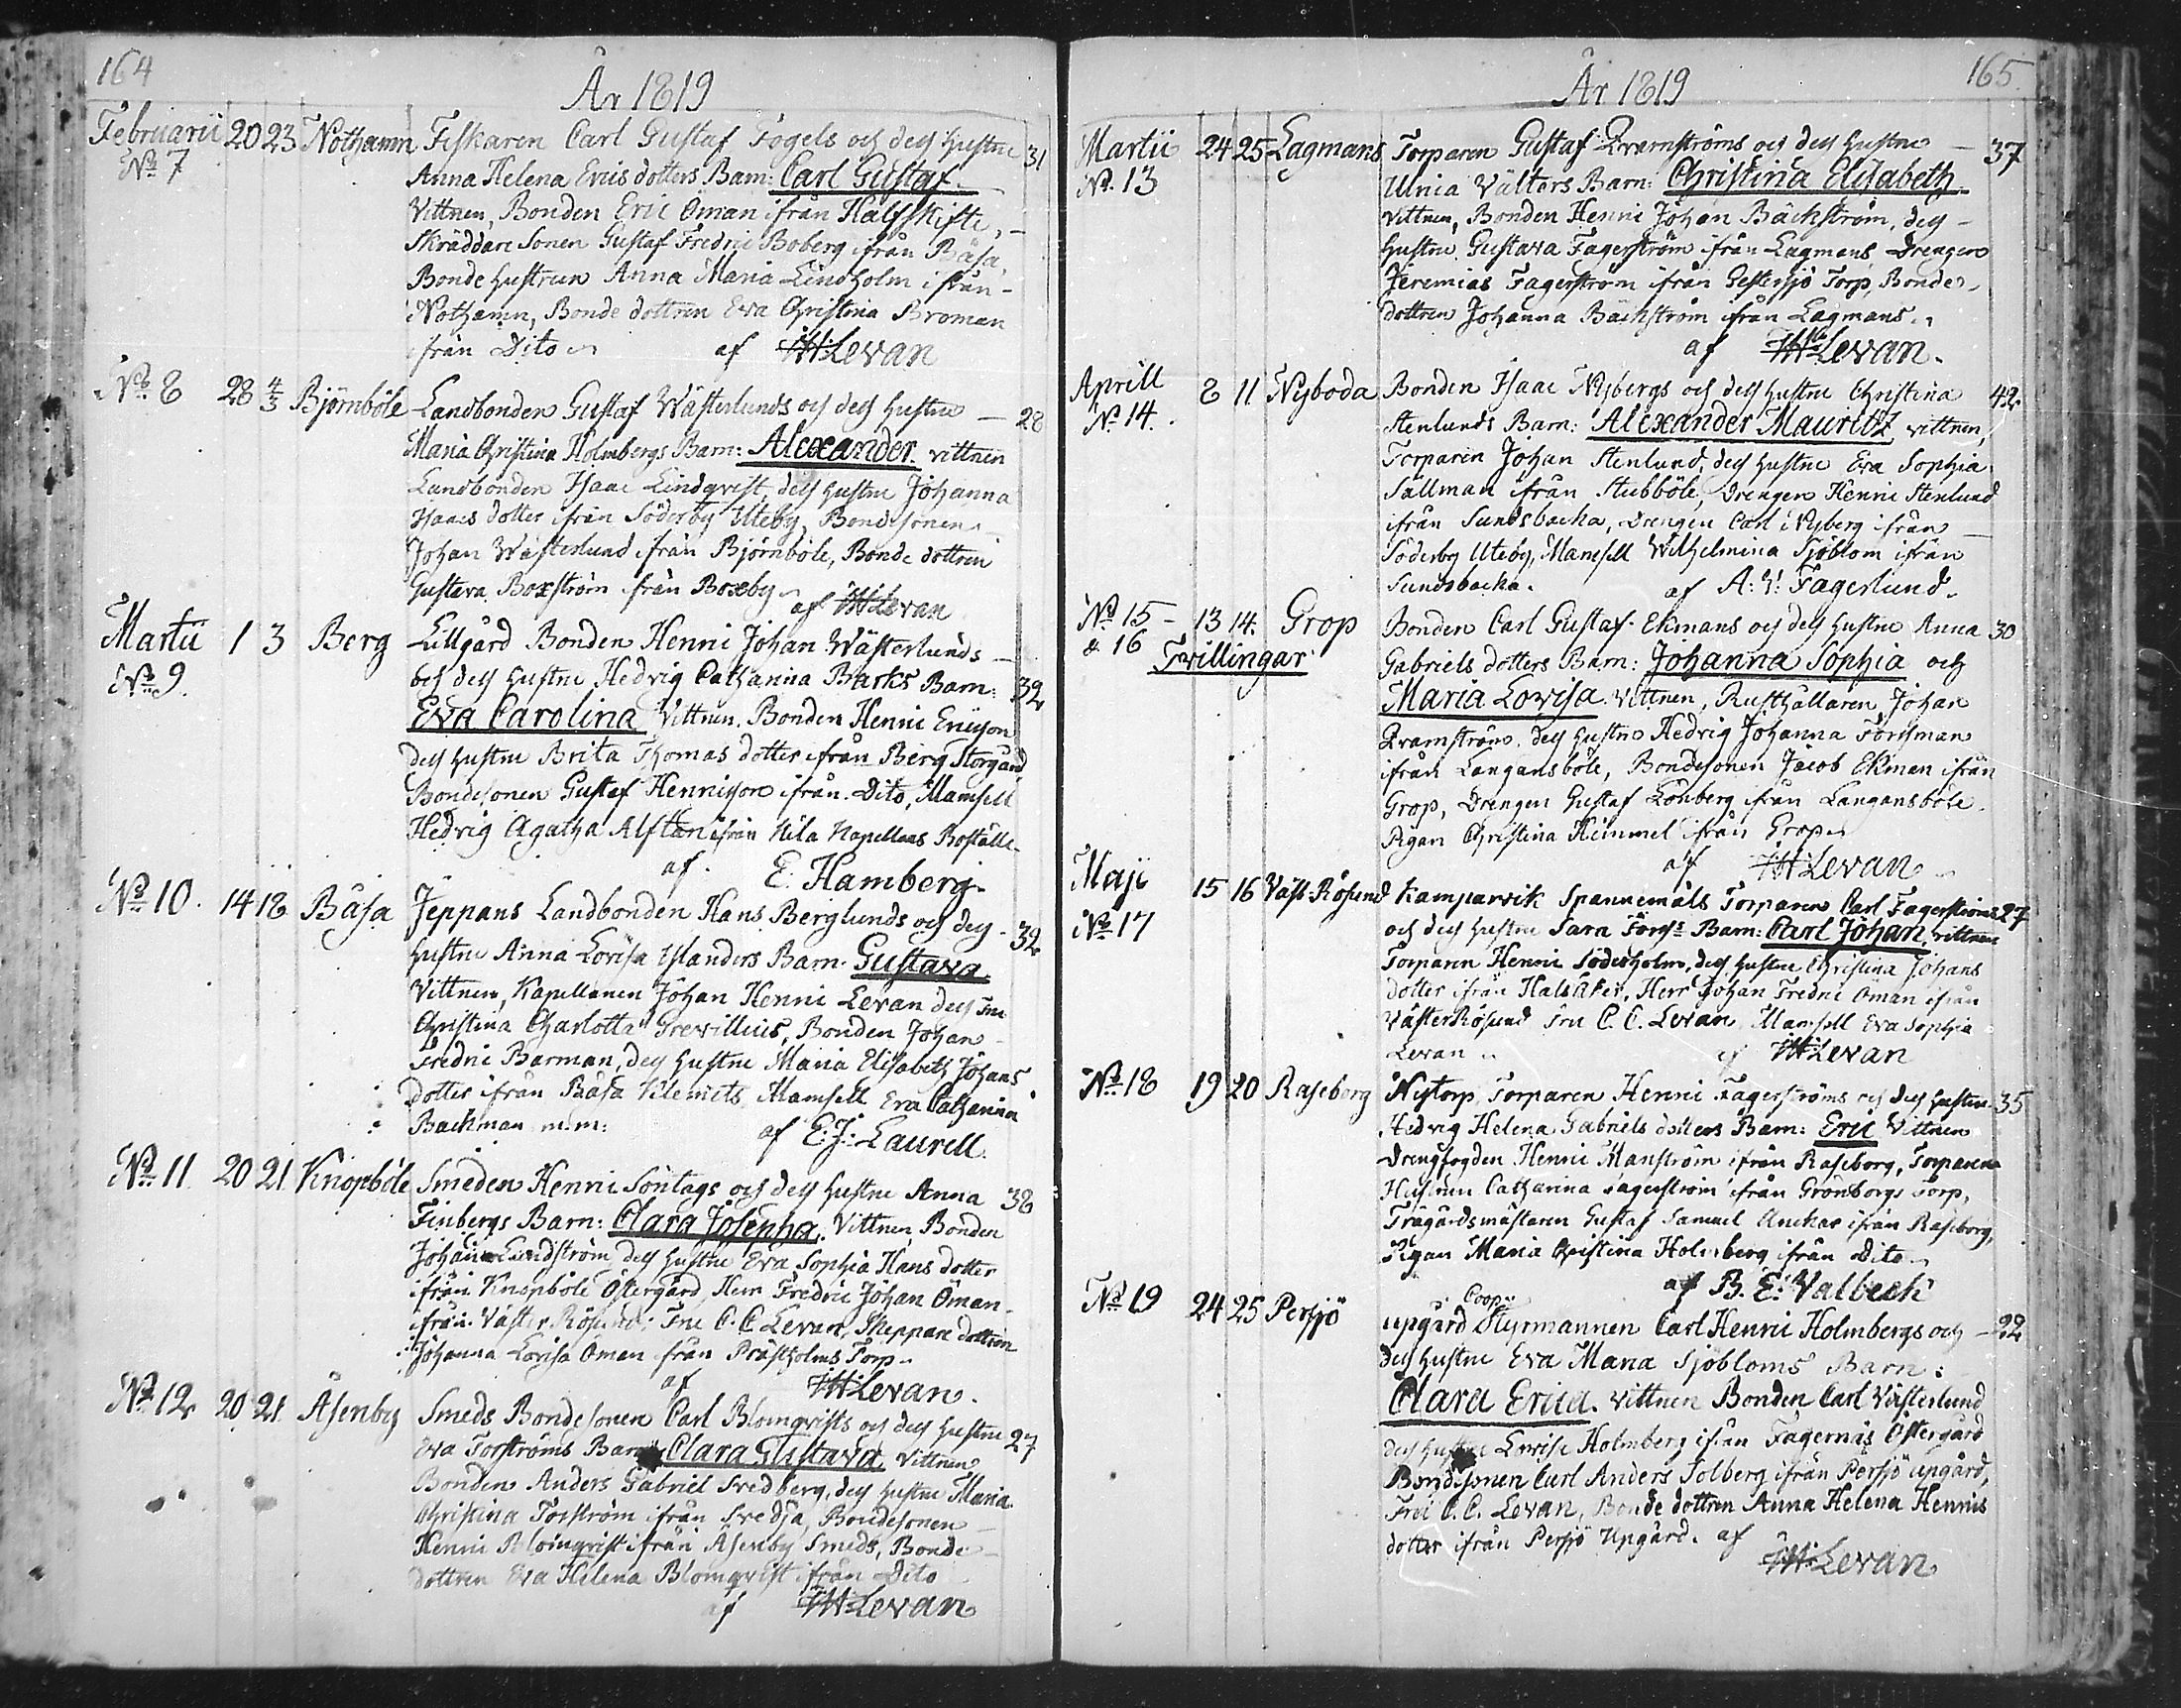 164
År 1819
Februarii 20 23 Nothamn Fiskaren Carl Gustaf Fogels och dess hustru 31
No 7 Anna Helena Erics dotters Barn: Carl Gustaf
Vittnen, Bonden Eric Öman ifrån Halfskifte,
Skräddare Sonen Gustaf Fredric Boberg ifrån Båsa,
Bonde hustrun Anna Maria Lindholm ifrån
Nothamn, Bonde dottren Eva Christina Broman
ifrån Dito af JH Levan
No 8 28 4/3 Björnböle Landbonden Gustaf Wästerlunds och dess hustru 28
Maria Christina Holmbergs Barn: Alexander. vittnen
Landbonden Isaac Lindqvist, dess hustru Johanna
Isaacs dotter ifrån Söderby Uteby, Bondesonen
Johan Wästerlund ifrån Björnböle, Bonde dottren
Gustava Boxström ifrån Boxeby af JH Levan
Martii 1 3 Berg Lillgård Bonden Henric Johan Wästerlunds
No 9. och dess hustru Hedvig Catharina Barks Barn: 32
Eva Carolina Vittnen. Bonden Henric Ericsson
dess hustru Brita Thomas dotter ifrån Berg Storgård
Bondesonen Gustaf Henricsson ifrån Dito, Mamsell
Hedvig Agatha Alftan ifrån Kila Kapellans Boställe.
af E. Hamberg
No 10. 14 18 Båsa Jeppans Landbonden Hans Berglunds och dess 32
hustru Anna Lovisa Uslanders Barn. Gustava
Vittnen, Kapellanen Johan Henric Levan dess Fru
Christina Charlotta Grevillius, Bonden Johan
Fredric Barman, dess hustru Maria Elisabeth Johans
dotter ifrån Båsa Klemets Mamsell Eva Catharina
Backman m:m: af E: J: Laurell.
No 11 20 21 Knopböle Smeden Henric Söntags och dess hustru Anna 38
Finbergs Barn: Clara Josepha. Vittnen Bonden
Johan Lundström dess hustru Eva Sophia Hans dotter
ifrån Knopböle Östergård, Herr Fredric Johan Öman
ifrån Väster Rösund, Fru C. C Levan, Skeppare dottren
Johanna Lovisa Öman från Prästholms Torp
af JH Levan.
No 12 20 21 Åsenby Smeds Bondesonen Carl Blomqvists och dess hustru 27
Eva Forströms Barn Clara Gustava Vittnen
Bonden Anders Gabriel Svedberg, dess hustru Maria
Christina Forström ifrån Svedja, Bondesonen
Henric Blomqvist ifrån Åsenby Smeds, Bonde
dottren Eva Helena Blomqvist ifrån Dito
af JH Levan
165.
År 1819
Martii 24 25 Lagmans Torparen Gustaf Qvarnströms och dess hustru 37
No. 13 Ulrica Välters Barn: Christina Elisabeth
vittnen, Bonden Henric Johan Bäckström, dess
hustru Gustava Fagerström ifrån Lagmans Drengen
Jeremias Fagerström ifrån Gestersjö Torp, Bonde
dottren Johanna Bäckström ifrån Lagmans.
af JH Levan.
Aprill 8 11 Nyboda Bonden Isaac Nybergs och dess hustru Christina 42
No 14. Stenlunds Barn: Alexander Mauritz vittnen,
Torparen Johan Stenlund, dess hustru Eva Sophia
Sällman ifrån Stubböle, Drengen Henric Stenlund
ifrån Sundsbacka, Drengen Carl Nyberg ifrån
Söderby Uteby, Mamsell Wilhelmina Sjöblom ifrån
Sundsbacka. af A: V: Fagerlund.
No 15 13 14. Grop Bonden Carl Gustaf Ekmans och dess hustru Anna 30
& 16 Tvillingar Gabriels dotters Barn: Johanna Sophia och
Maria Lovisa. Vittnen, Rusthållaren Johan
Qvarnström, dess hustru Hedvig Johanna Forsman
ifrån Langansböle, Bondesonen Jacob Ekman ifrån
Grop, Drengen Gustaf Lönberg ifrån Langansböle.
Pigan Christina Himmel ifrån Grop
af JH Levan
Maji 15 16 Väst-Rösund Kamparvik Spannemåls Torparen Carl Fagerströms 27
No 17 och dess hustru Sara Förss Barn: Carl Johan, vittnen
Torparen Henric Söderholm, dess hustru Christina Johans
dotter ifrån Halsåker, Herr Johan Fredric Öman ifrån
Väster Rösund Fru C. C. Levan, Mamsell Eva Sophia
Levan af JH Levan
No 18 19 20 Raseborg Nytorp, Torparen Henric Fagerströms och dess hustru 35
Hedvig Helena Gabriels dotters Barn: Eric Vittnen
Drengfogden Henric Manström ifrån Raseborg, Torparen
Hustrun Catharina Fagerström ifrån Grönborgs Torp,
Trägårdsmästaren Gustaf Samuel Anckar ifrån Raseborg,
Pigan Maria Christina Holmberg ifrån Dito
af B. E: Valbeck
Coop
No 19 24 25 Persjö upgård Styrmannen Carl Henric Holmbergs och 22
dess hustru Eva Maria Sjöbloms Barn:
Clara Erica. Vittnen Bonden Carl Västerlund
dess hustru Lovisa Holmberg ifrån Fagernäs Östergård
Bondesonen Carl Anders Solberg ifrån Persjö upgård,
Fru C. C. Levan, Bonde dottren Anna Helena Henrics
dotter ifrån Persjö Upgård. af
JH Levan